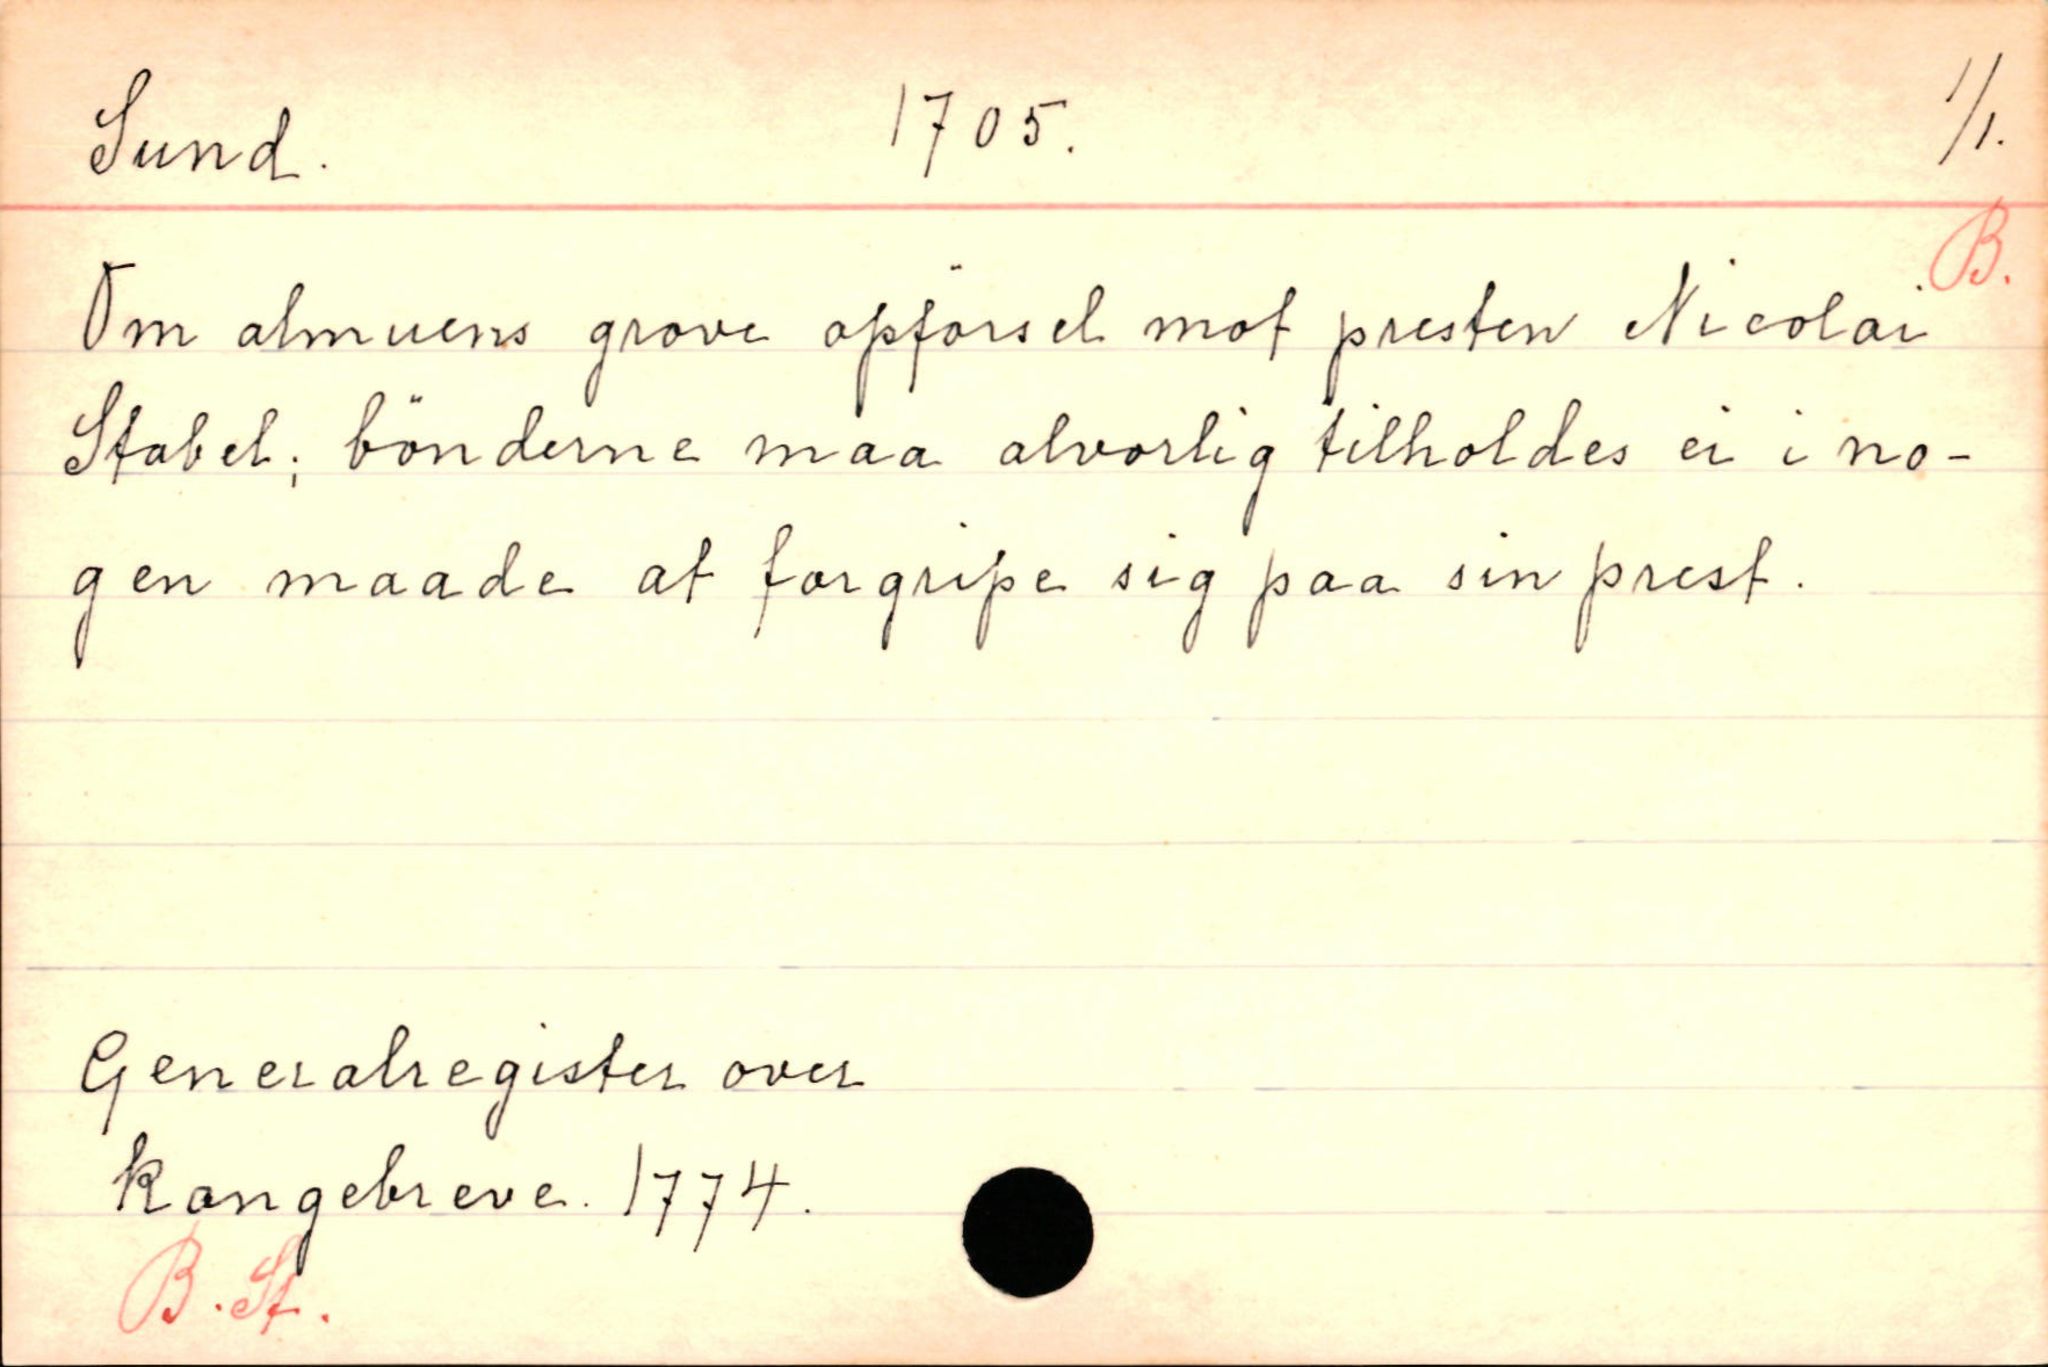 Sund. 1705. 1/1.
B.
Om almuens grove opförsel mot presten Nicolai
Stabel; bönderne maa alvorlig tilholdes ei i no-
gen maade at forgripe sig paa sin prest.
Generalregister over
kongebreve. 1774.
B. St.